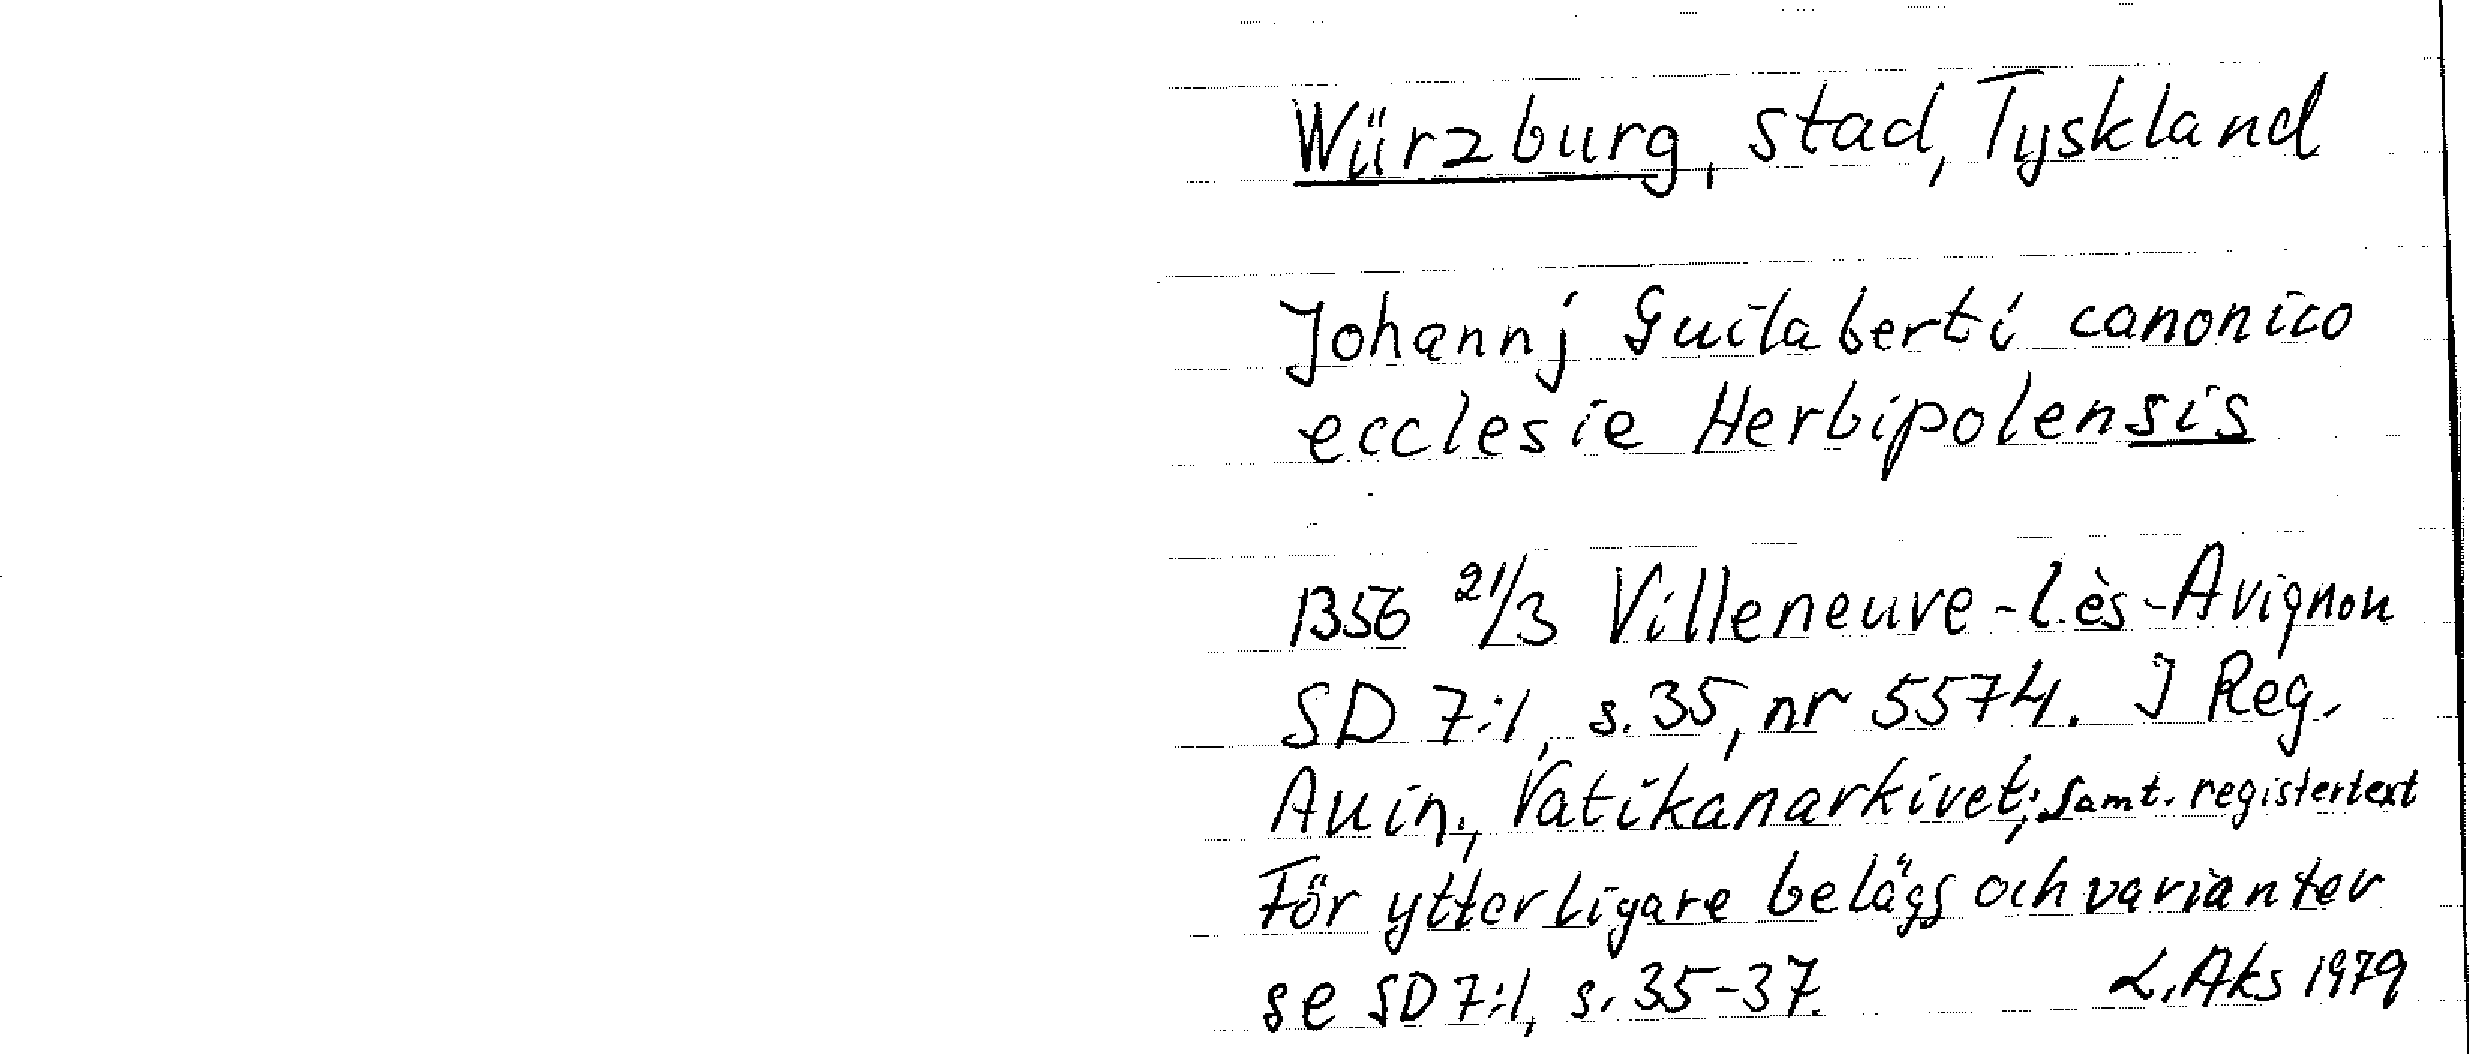 Würzburg, stad, Tyskland
Johannj Guilaberti canonico
ecclesie Herbipolensis
1356 21/3 Villeneuve-lès-Avignon
SD 7:1, s. 35, nr 5574. I Reg.
Auin., Vatikanarkivet; samt. registertext
För ytterligare belägg och varianter
se SD 7:1, s. 35-37. L. Aks 1979